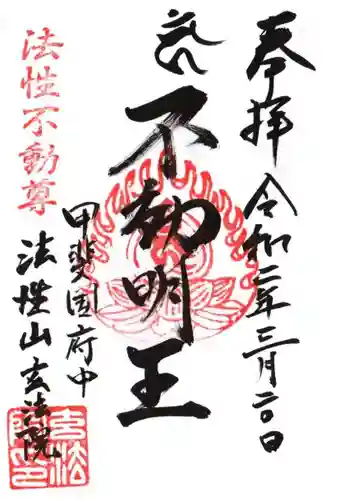 奉拝 令和二年三月二〇日
不動明王
甲斐国府中
法性山玄法院
法性不動尊
玄法院印